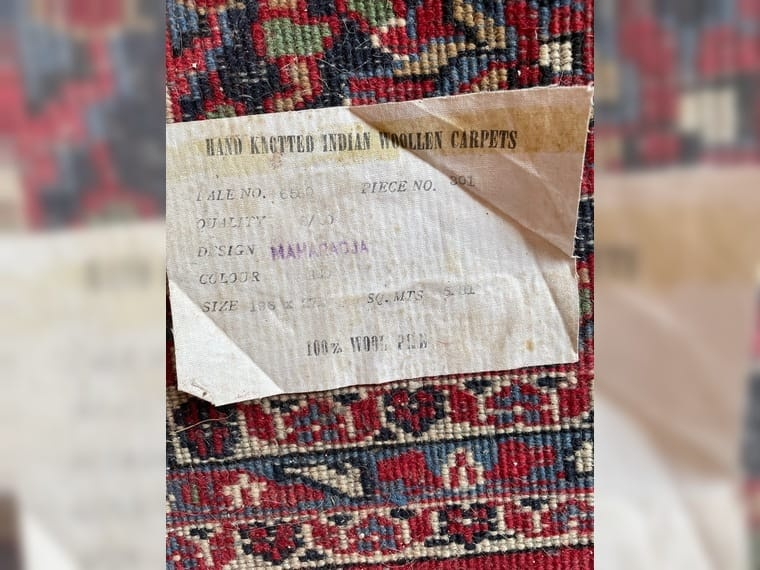 HAND KNOTTED INDIAN WOOLLEN CARPETS
BALE NO. PIECE NO. 301
QUALITY
DESIGN MAHARADJA
COLOUR
SIZE 198 X SQ. MTS
100% WOOL PILE